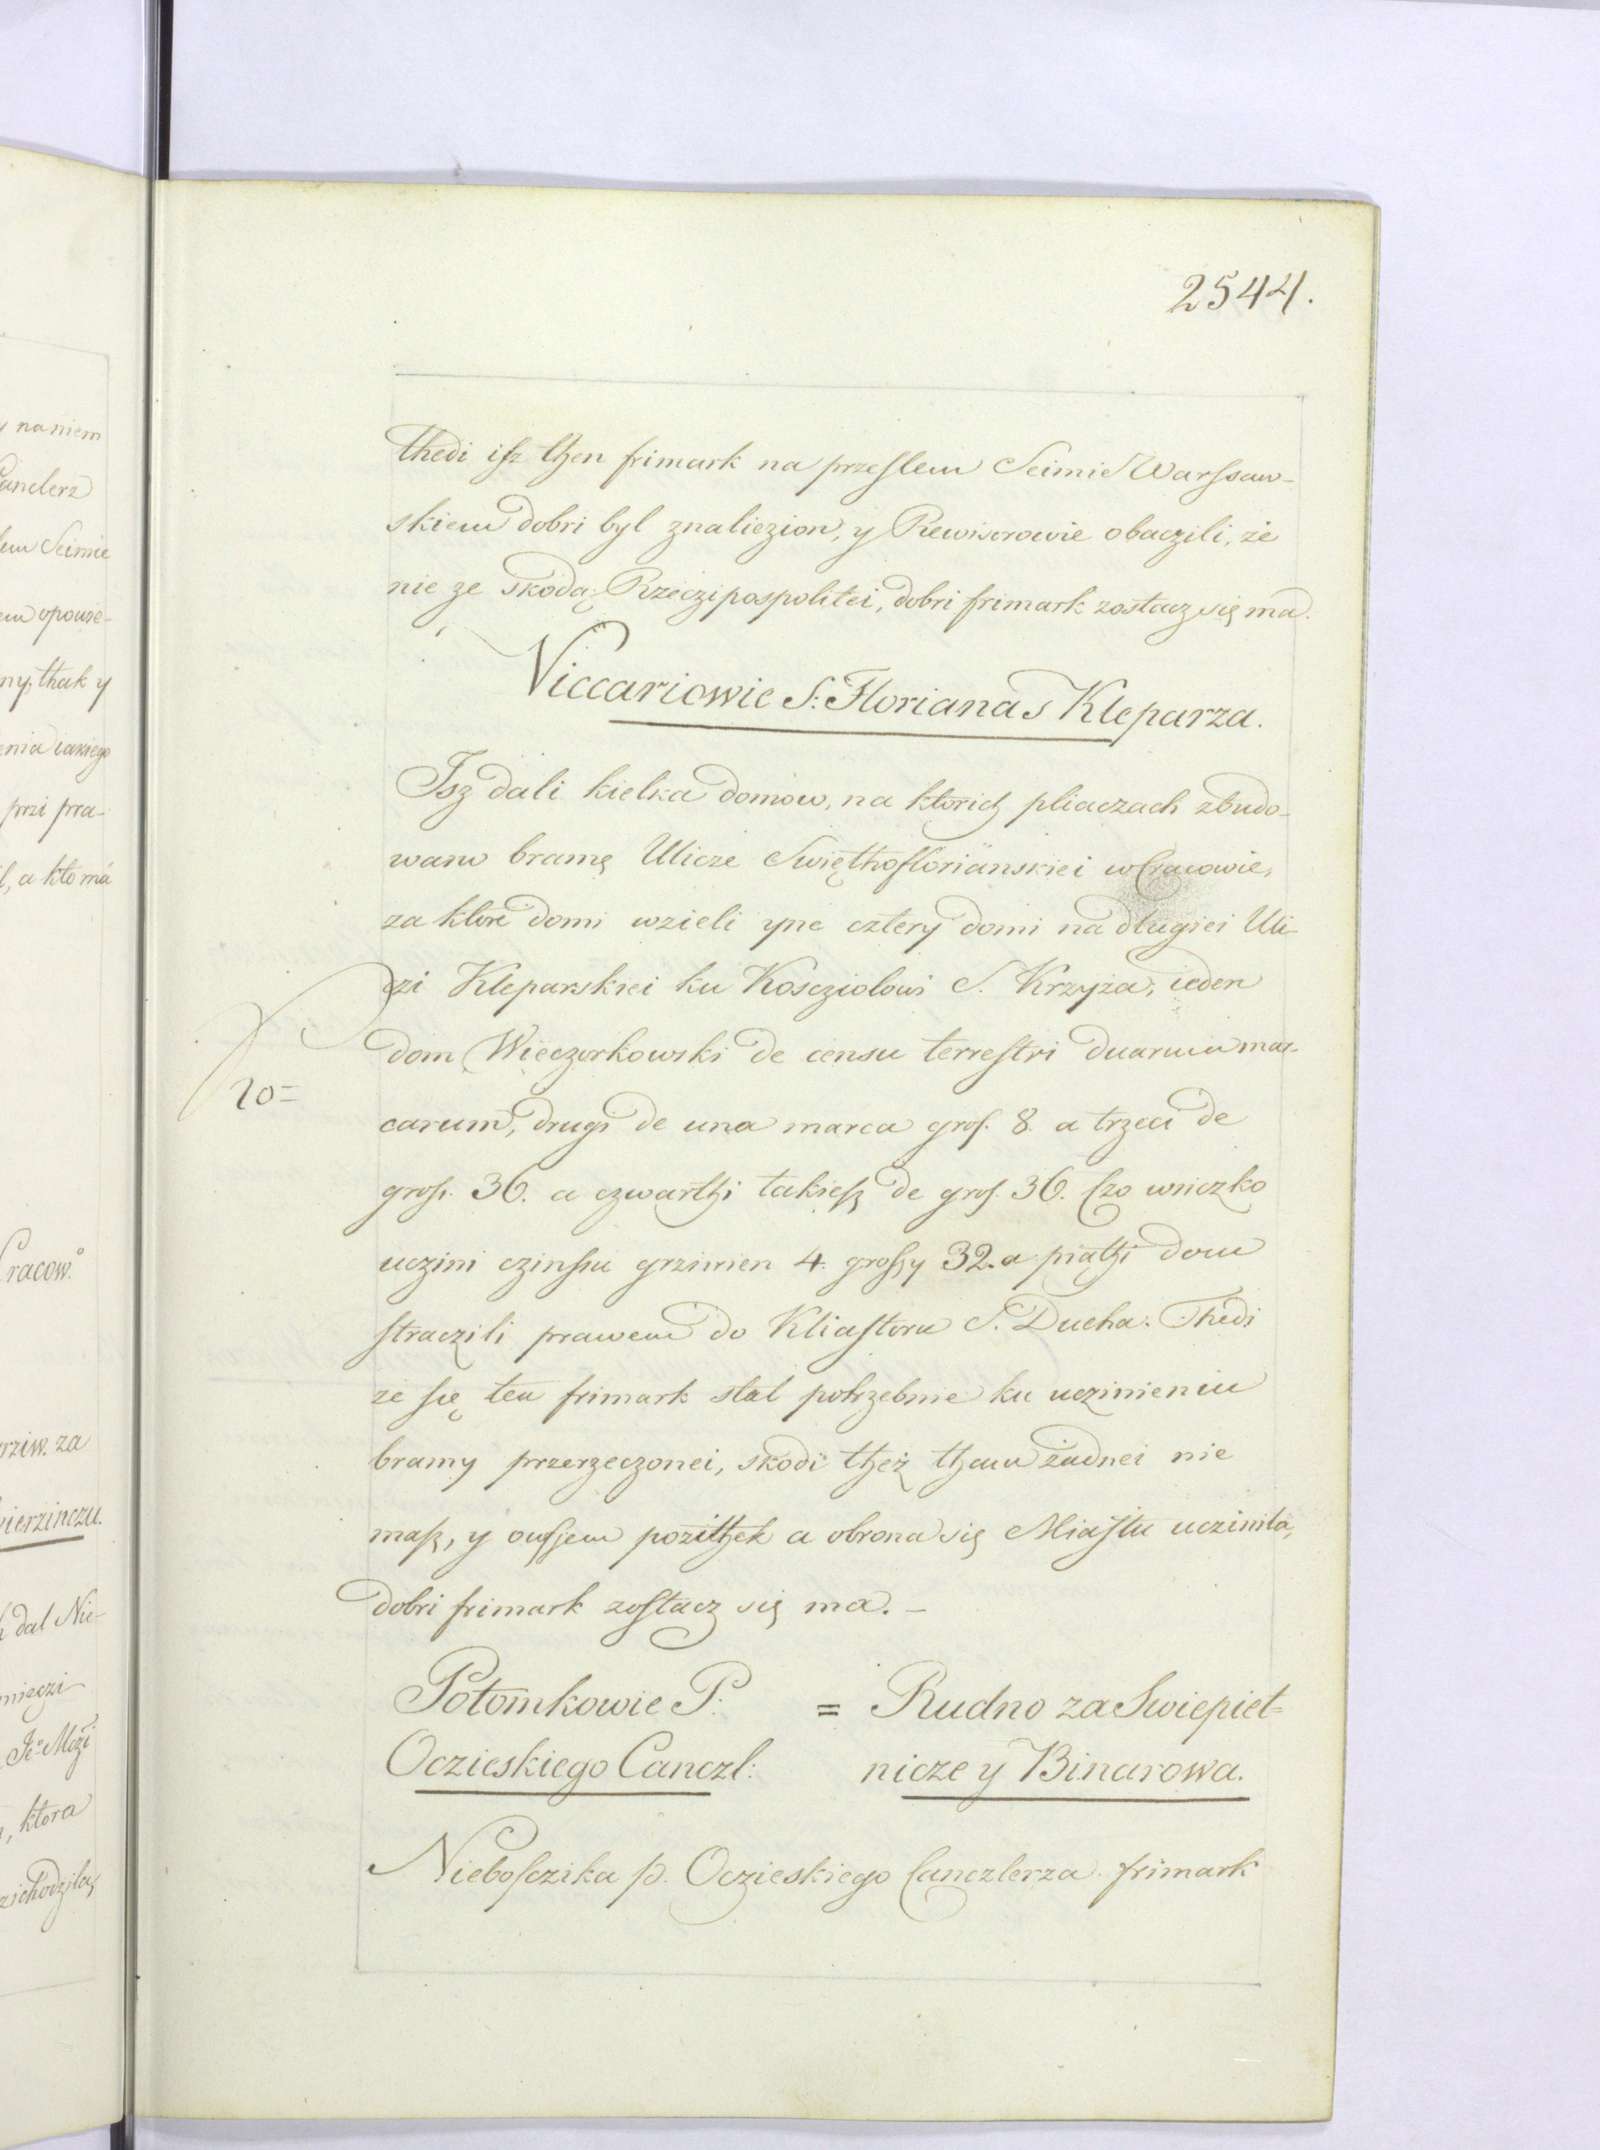 2544.
thedi isz then frimark na przeslem Seimie Warssaw-
skiem dobri byl znaliezion, y Rewisorowie obaczili, że
nie ze skodą Rzeczipospolitei, dobri frimark zostacz się ma.
Viccariowie S: Floriana s Kleparza.
Isz dali kielka domow, na ktorich pliaczach zbudo-
wano bramę Ulicze Swięthofloriänskiei w Cracowie,
za ktore domi wzieli yne cztery domi na długiei Uli-
czi Kleparskiei ku Koscziolowi S. Krzyża, ieden
dom Wieczorkowski de censu terrestri duarum mar-
carum, drugi de una marca gros. 8. a trzeci de
gross. 36. a czwarthi takiesz de gros. 36. Czo wsiczko
uczini czinssu grziwien 4. grossy 32. a piąthi dom
straczili prawem do Kliastoru S. Ducha. Thedi
że się ten frimark stal potrzebnie ku uczinieniu
bramy przerzeczonei, skodi theż tham żadnei nie
masz, y owssem pozithek a obrona się Miastu uczinila,
dobri frimark zostacz się ma. –
Potomkowie P. = Rudno za Swiepiet-
Oczieskiego Canczl: nicze y Binarowa.
Nieboszczika p. Oczieskiego Canczlerza frimark
20=
y na niem
Canclerz
lem Seimie
em opowie-
ny, thak y
enia takiego
przi pra-
l, a kto má
Cracow.
rziw. za
wierzinczu.
dal Nie-
mięczi
Je Mczi
ktora